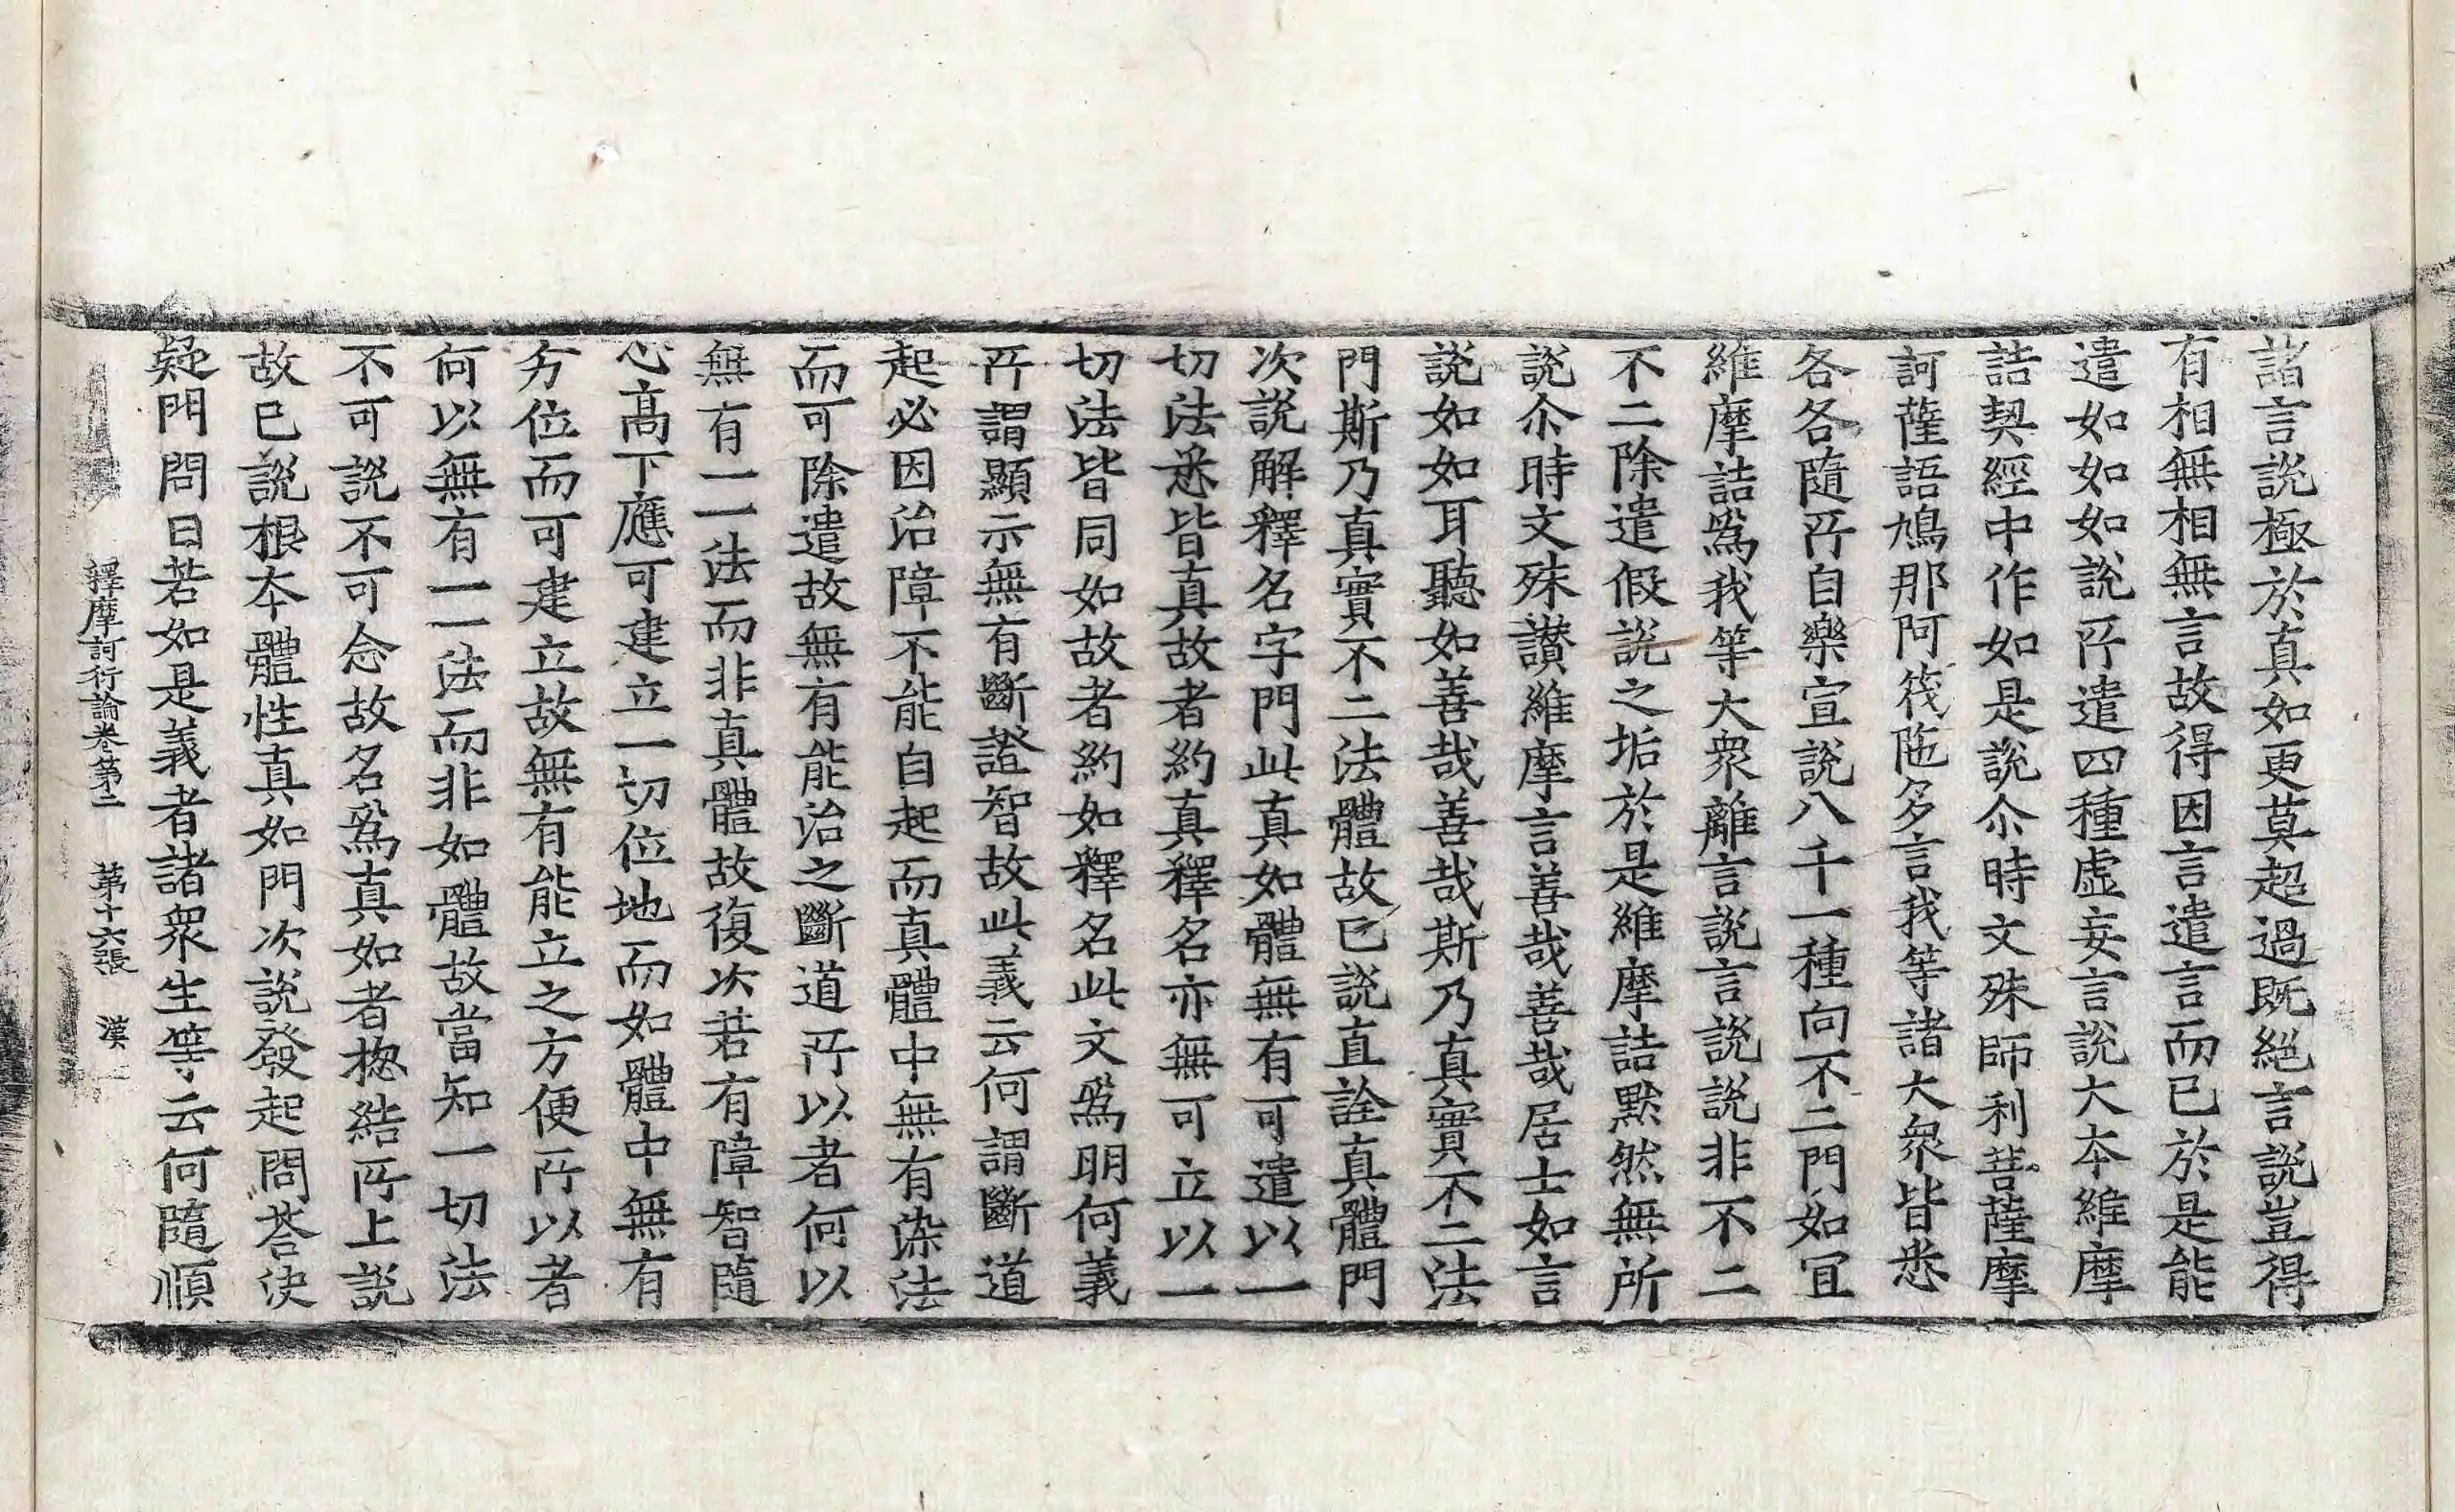 諸言説極於真如更莫超過既絕言説豈得
有相無相無言故得因言遣言而已於是能
遣如如如説𠩄遣四種虛妄言説大夲維摩
詰契經中作如是説尒時文殊師利菩薩摩
訶薩語鳩那阿筏陁多言我等諸大衆皆悉
各各隨𠩄自樂宣説八千一種向不二門如冝
維摩詰爲我等大衆離言説言説説非不二
不二除遣假説之垢於是維摩詰默然無所
説尒時文殊讃維摩言善哉善哉居士如言
説如如耳聽如善哉善哉斯乃真實不二法
門斯乃真實不二法體故已説直詮真體門
次説解釋名字門此真如體無有可遣以一
切法悉皆真故者約真釋名亦無可立以一
切法皆同如故者約如釋名此文爲明何義
𠩄謂顯示無有斷證智故此義云何謂斷道
起必因治障不能自起而真體中無有染法
而可除遣故無有能治之斷道𠩄以者何以
無有一一法而非真體故復次若有障智隨
心高下應可建立一切位地而如體中無有
夯位而可建立故無有能立之方便𠩄以者
何以無有一一法而非如體故當知一切法
不可説不可念故名爲真如者揔結𠩄上説
故已説根夲體性真如門次説發起問荅決
疑門問曰若如是義者諸衆生等云何隨順
釋摩訶衍論卷第二 第十六張 漢